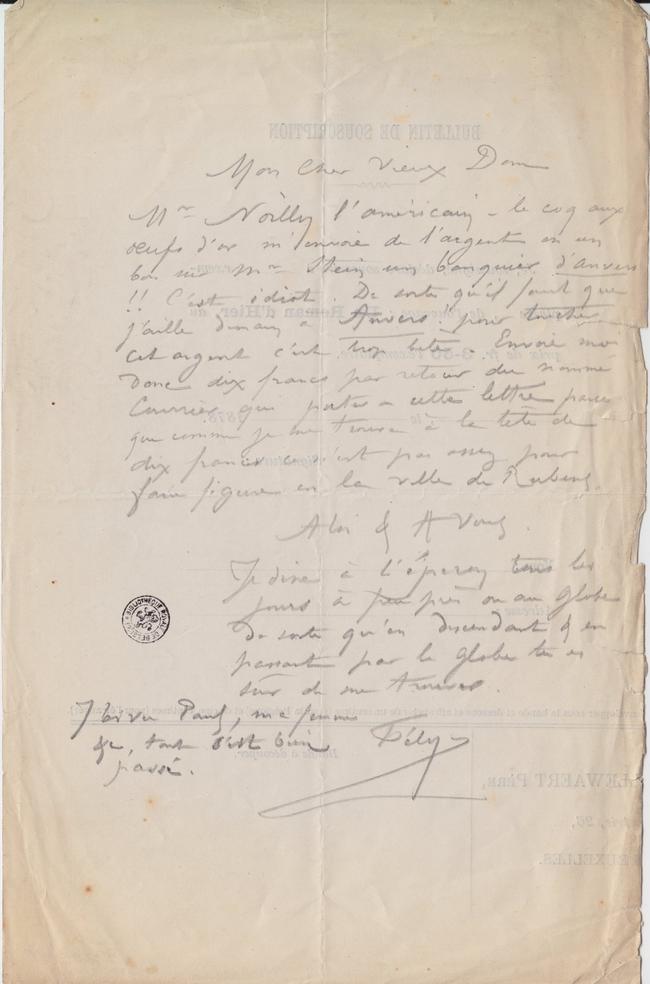 Mon Cher Vieux Dom
Mr Noilly l'américain – le coq aux
œufs d'or m'envoie de l'argent en un
bon sur Mr Stein un banquier d'anvers
!! C'est idiot. De sorte qu'il faut que
j'aille demain à Anvers pour toucher
cet argent c'est trop bête. Envoie moi
Donc dix francs par retour du nommé
Courrier qui portera cette lettre parce
que comme je me trouve à la tête de
dix francs ce n'est pas assez pour
faire figure en la ville de Rubens.
A toi & A Vous.
Je dine à l'éperon tous les
jours à peu près ou au Globe
De sorte qu'en descendant & en
passant par le Globe tu es
sûr de me trouver.
J'ai vu Paul, ma femme
&c, tout s'est bien
passé.
Fély
BULLETIN DE SOUSCRIPTION
BIBLIOTHÈQUE ROYALE DE BELGIQUE